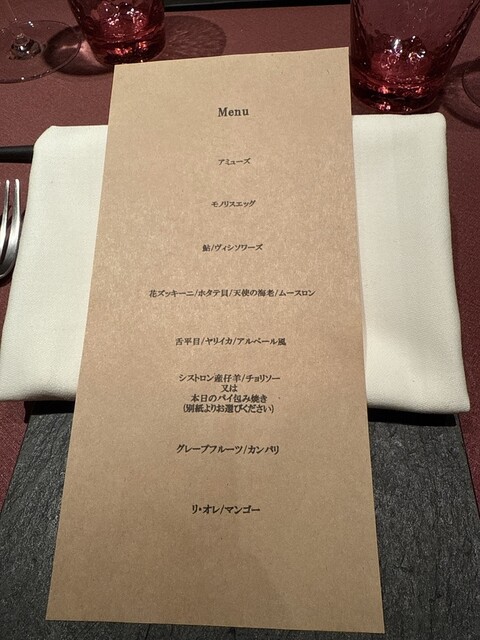 Menu
アミューズ
モノリスエッグ
鮎/ヴィシソワーズ
花ズッキーニ/ホタテ貝/天使の海老/ムースロン
舌平目/ヤリイカ/アルベール風
シストロン産仔羊/チョリソー
又は
本日のパイ包み焼き
(別紙よりお選びください)
グレープフルーツ/カンパリ
リ・オレ/マンゴー